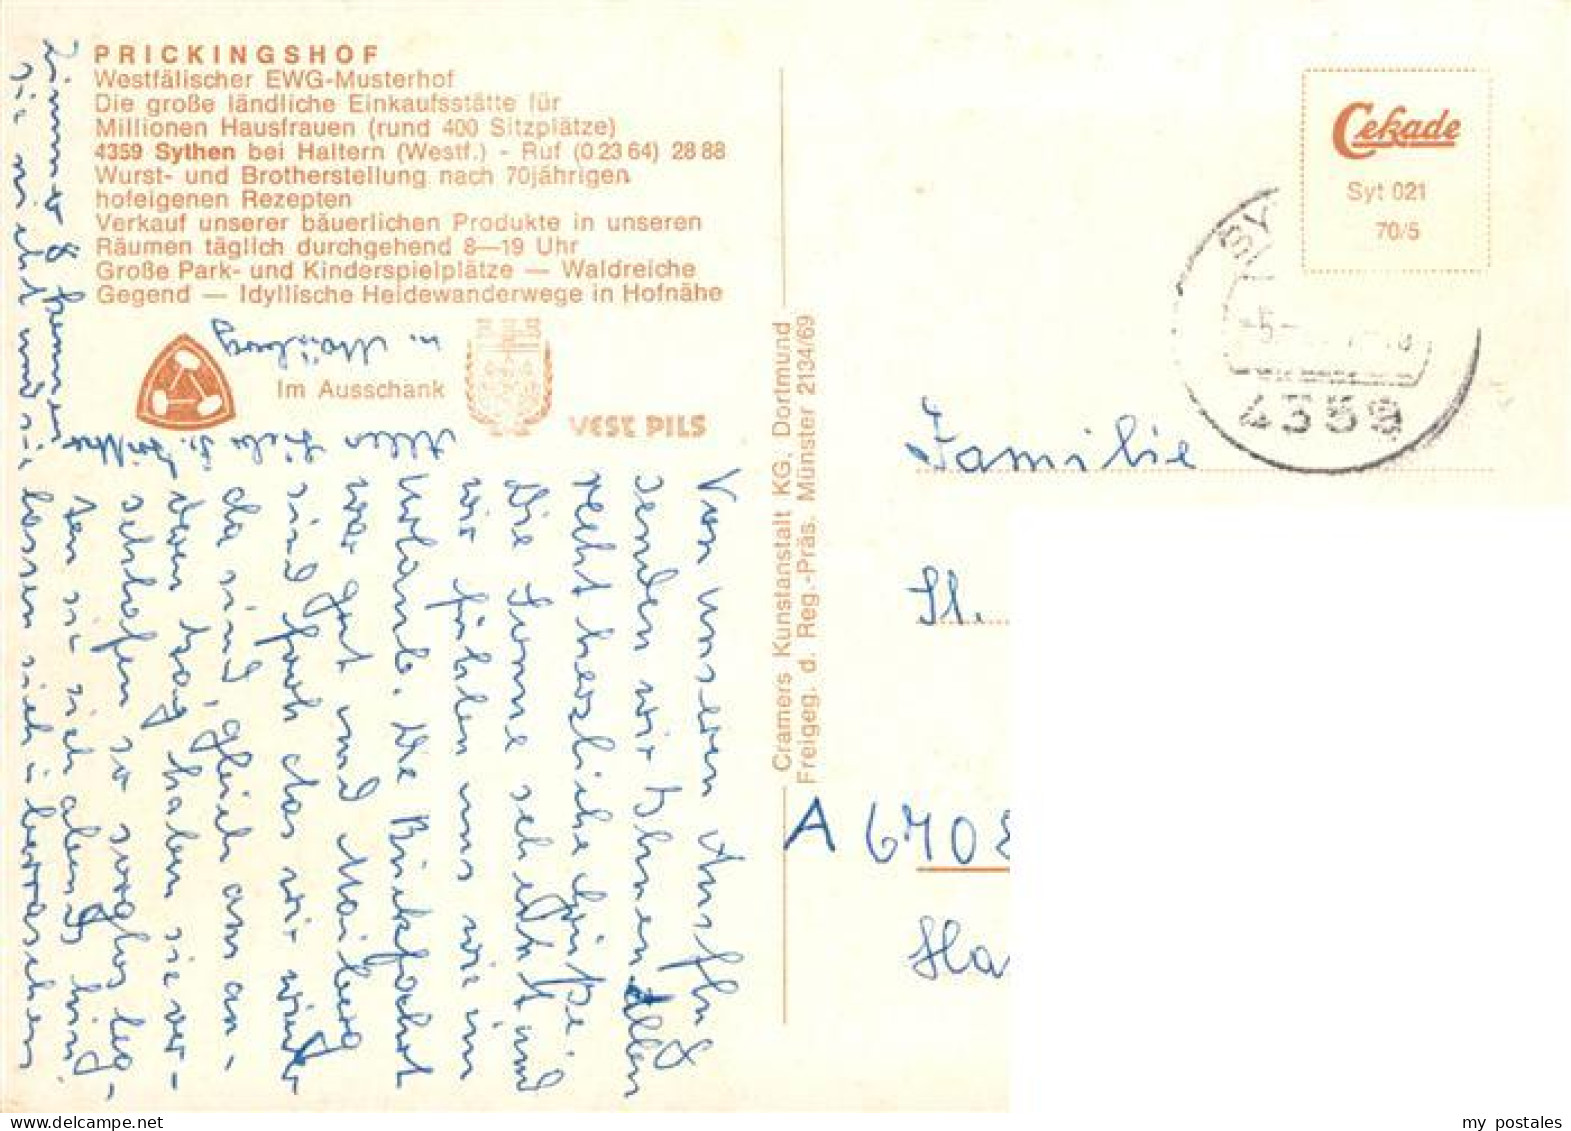 PRICKINGSHOF
Westfälischer EWG-Musterhof
Die große ländliche Einkaufsstätte für
Millionen Hausfrauen (rund 400 Sitzplätze)
4359 Sythen bei Haltern (Westf.) - Ruf (0 23 64) 28 88
Wurst- und Brotherstellung nach 70jährigen
hofeigenen Rezepten
Verkauf unserer bäuerlichen Produkte in unseren
Räumen täglich durchgehend 8—19 Uhr
Große Park- und Kinderspielplätze — Waldreiche
Gegend — Idyllische Heidewanderwege in Hofnähe
Im Ausschank
VEST PILS
Von unseren Ausflug
senden wir Ihnen allen
recht herzliche Grüße.
Die Sonne scheint und
wir fühlen uns wie im
Urlaub. Die Rückfahrt
war gut und
sind froh das wir wieder
da sind, gleich am an-
haben sie ver-
schlafen so sorglos leg-
ten sie sich abends hin
lassen sich überraschen
sie nicht und sie
Alles Liebe
u.
Cramers Kunstanstalt KG, Dortmund
Freigeg. d. Reg.-Präs. Münster 2134/69
Cekade
Syt 021
70/5
SY
-5.-
4359
Familie
A 6702
Ha
my postales